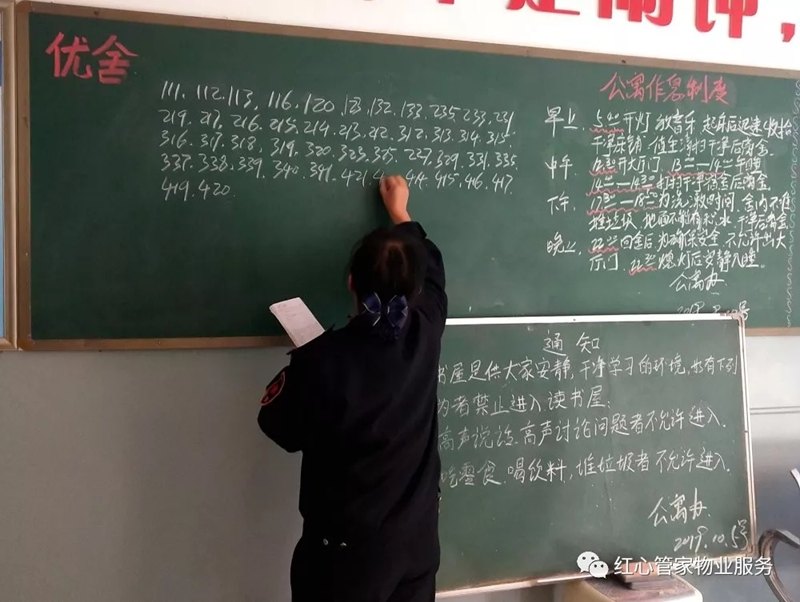 优舍
111. 112. 113. 116. 120. 123. 132. 133. 235. 233. 231
219. 217. 216. 215. 214. 213. 212. 312. 313. 314. 315.
316. 317. 318. 319. 320. 323. 325. 327. 329. 331. 335
337. 338. 339. 340. 341. 421. 414. 415. 416. 417.
419. 420.
公寓作息制度
早上. 5 开灯 放音乐 起床后迅速收拾
干净
中午. 开大厅门
下午. 为洗漱时间, 舍内不准
堆垃圾, 地面不能有积水 干净后离舍
晚上. 回舍后为确保安全 不允许出大
厅门. 熄灯后安静入睡.
公寓办
通知
书屋是供大家安静, 干净学习的环境, 也有下列
为者禁止进入读书屋:
高声说话, 高声讨论问题者不允许进入.
吃零食. 喝饮料, 堆垃圾者 不允许进入.
公寓办.
2019.10.5号
红心管家物业服务